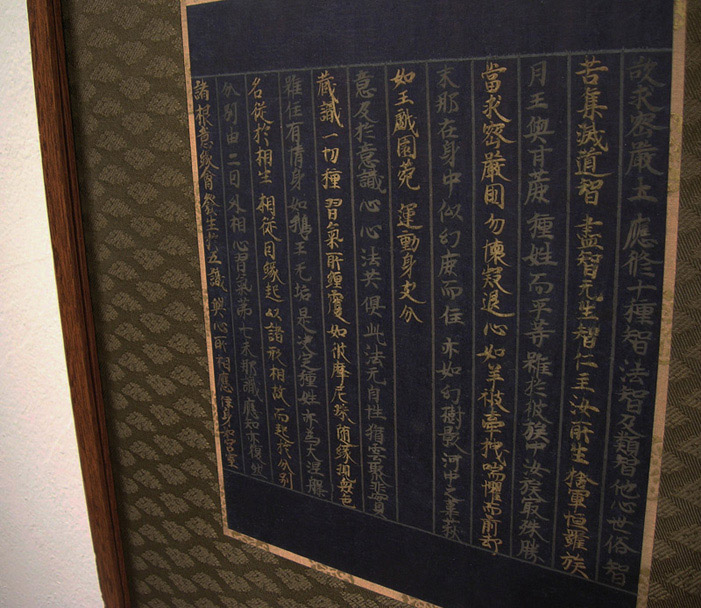 故求密嚴土 應修十種智 法智及類智 他心世俗智
苦集滅道智 盡智无生智 仁主汝所生 軍恒羅族
月王與甘蔗 種姓而平等 雖於彼族中 汝族最殊勝
當求密嚴國 勿懷疑退心 如羊被牽拽 喘懼而前却
末那在身中 似幻鹿而住 亦如幻樹影 河中之葦荻
如王戲園苑 運動身支分
意及於意識 心心法共俱 此法无自性 猶雲聚非實
藏識一切種 習氣所纏覆 如彼摩尼珠 隨緣現眾色
雖住有情身 如鵝王无垢 是決定種姓 亦為大涅槃
名從於相生 相從因緣起 以諸形相故 而起於分別
分別由二因 外相心習氣 第七末那識 應知亦復然
諸根意緣會 發生於五識 與心所相應 住身如宮室